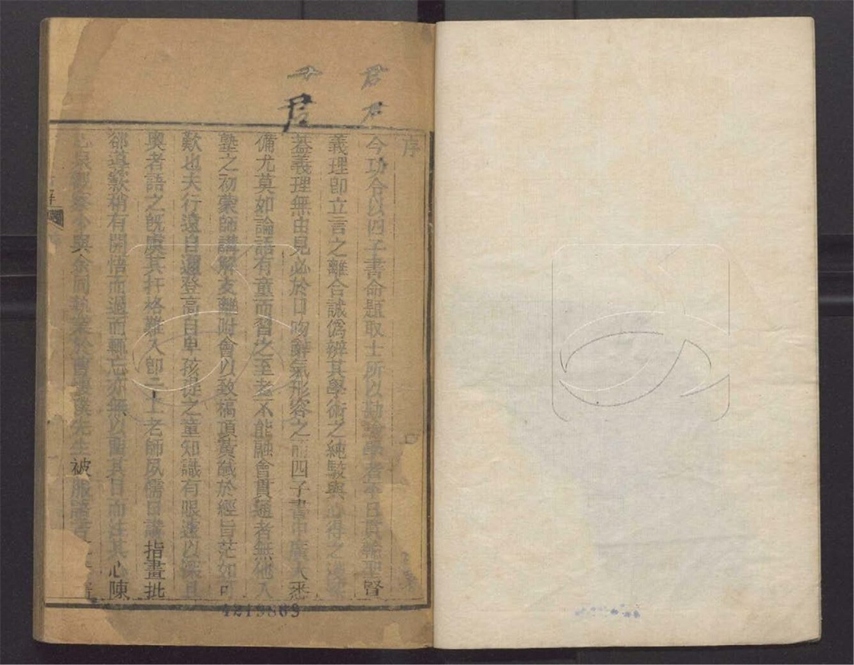 君
君
序
今功令以四子書命題取士所以勘驗學者平日貫穿聖賢
義理卽立言之離合誠僞辨其學術之純駁與心得之淺深
葢義理無由見必於口吻辭氣形容之而四子書中廣大悉
備尤莫如論語有童而習之至老不能融會貫通者無他入
塾之初蒙師講解支離附會以致槁頂黃馘於經旨茫如可
歎也夫行遠自邇登高自卑孩提之童知識有限遽以深且
奧者語之旣虞其扞格難入卽 老師夙儒日講指畫批
郤導窾稍有開悟而過而輒忘亦無以醒其目而注其心陳
與余同 先生被服
序
4219869